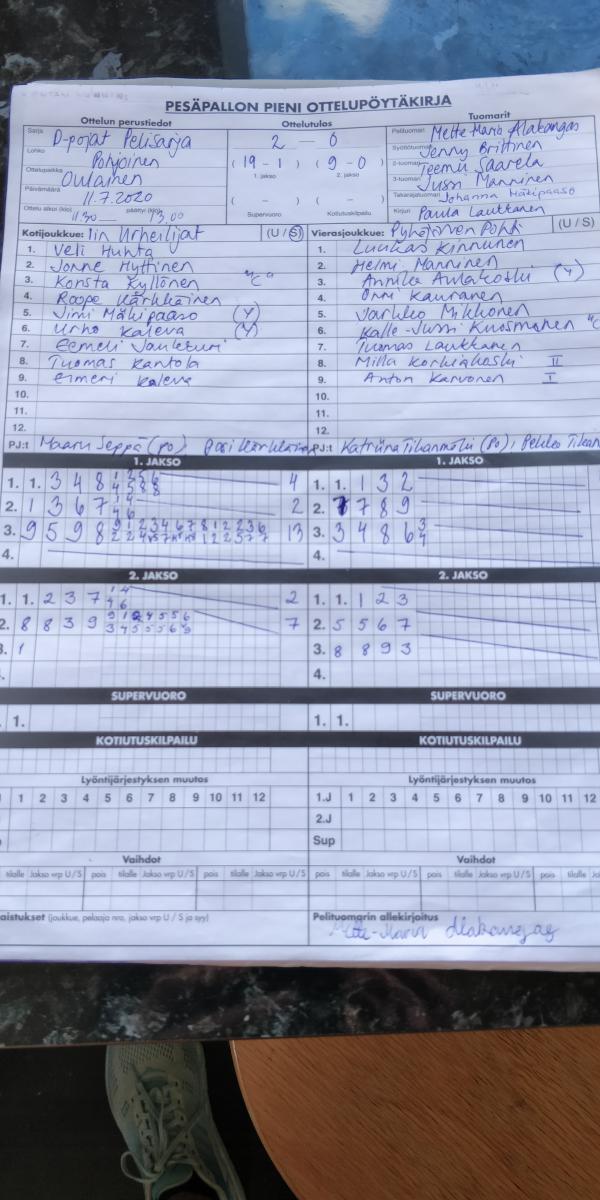 PESÄPALLON PIENI OTTELUPÖYTÄKIRJA
Ottelun perustiedot
Sarja D-pojat Pelisarja
Lohko Pohjoinen
Ottelupaikka Oulainen
Päivämäärä 11.7.2020
Ottelu alkoi (klo) 11.30 päättyi (klo) 13.00
Ottelutulos
2 – 0
( 19 - 1 ) ( 9 - 0 )
1. jakso 2. jakso
( - ) ( - )
Supervuoro Kotiutuskilpailu
Tuomarit
Pelituomari Mette-Maria Alakangas
Syöttötuomari Jenny Brittinen
2-tuomari Teemu Saarela
3-tuomari Jussi Manninen
Takarajatuomari Johanna Mäkipaaso
Kirjuri Paula Lauttanen
Kotijoukkue: Iin Urheilijat (U / S)
1. Veli Huhta
2. Jonne Hyttinen
3. Konsta Kyllönen "C"
4. Roope Kärkkäinen
5. Jimi Mäkipaaso (Y)
6. Urho Kaleva (Y)
7. Eemeli
8. Tuomas Kantola
9. Elmeri Kaleva
10.
11.
12.
PJ:t Maaru Seppä (po) Pasi Kärkkäinen
Vierasjoukkue: Pyhäjärven Pohti (U / S)
1. Luukas Kinnunen
2. Helmi Manninen
3. Annika (Y)
4. Onni Kauranen
5. Jarkko Mikkonen
6. Kalle-Jussi Kuosmanen "C
7. Tuomas Lauttanen
8. Milla Korkiakoski II
9. Anton Karvonen I
10.
11.
12.
PJ:t Katriina (po), Pekko
1. JAKSO
1. 1. 3 4 8 4
2. 1 3 6 7 2
3. 9 5 9 8 13
4.
1. JAKSO
1. 1. 1 3 2
2. 7 7 8 9
3. 3 4 8 6
4.
2. JAKSO
1. 1. 2 3 7 2
2. 8 8 3 9 7
3. 1
2. JAKSO
1. 1. 1 2 3
2. 5 5 6 7
3. 8 8 9 3
4.
SUPERVUORO
1.
SUPERVUORO
1. 1.
KOTIUTUSKILPAILU
KOTIUTUSKILPAILU
Lyöntijärjestyksen muutos
1 2 3 4 5 6 7 8 9 10 11 12
Lyöntijärjestyksen muutos
1.J 1 2 3 4 5 6 7 8 9 10 11 12
2.J
Sup
Vaihdot
tilalle Jakso vrp U / S pois tilalle Jakso vrp U / S pois tilalle Jakso vrp U / S
Vaihdot
pois tilalle Jakso vrp U / S pois tilalle Jakso vrp U / S pois tilalle
aistukset (joukkue, pelaaja nro, jakso vrp U / S ja syy)
Pelituomarin allekirjoitus
Mette-Maria Alakangas